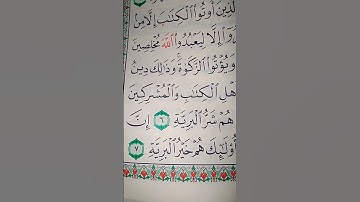 لَّذِينَ أُوتُوا۟ ٱلْكِتَٰبَ إِلَّا مِنۢ
رُوٓا۟ إِلَّا لِيَعْبُدُوا۟ ٱللَّهَ مُخْلِصِينَ
وَيُؤْتُوا۟ ٱلزَّكَوٰةَ ۚ وَذَٰلِكَ دِينُ
هْلِ ٱلْكِتَٰبِ وَٱلْمُشْرِكِينَ
هُمْ شَرُّ ٱلْبَرِيَّةِ ٦ إِنَّ
أُو۟لَٰٓئِكَ هُمْ خَيْرُ ٱلْبَرِيَّةِ ٧